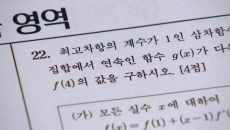 영역
22. 최고차항의 계수가 1인 삼차함수
집합에서 연속인 함수 g(x)가 다음
f(4)의 값을 구하시오. [4점]
(가) 모든 실수 x에 대하여
f(x)=f(1)+(x-1)f'(